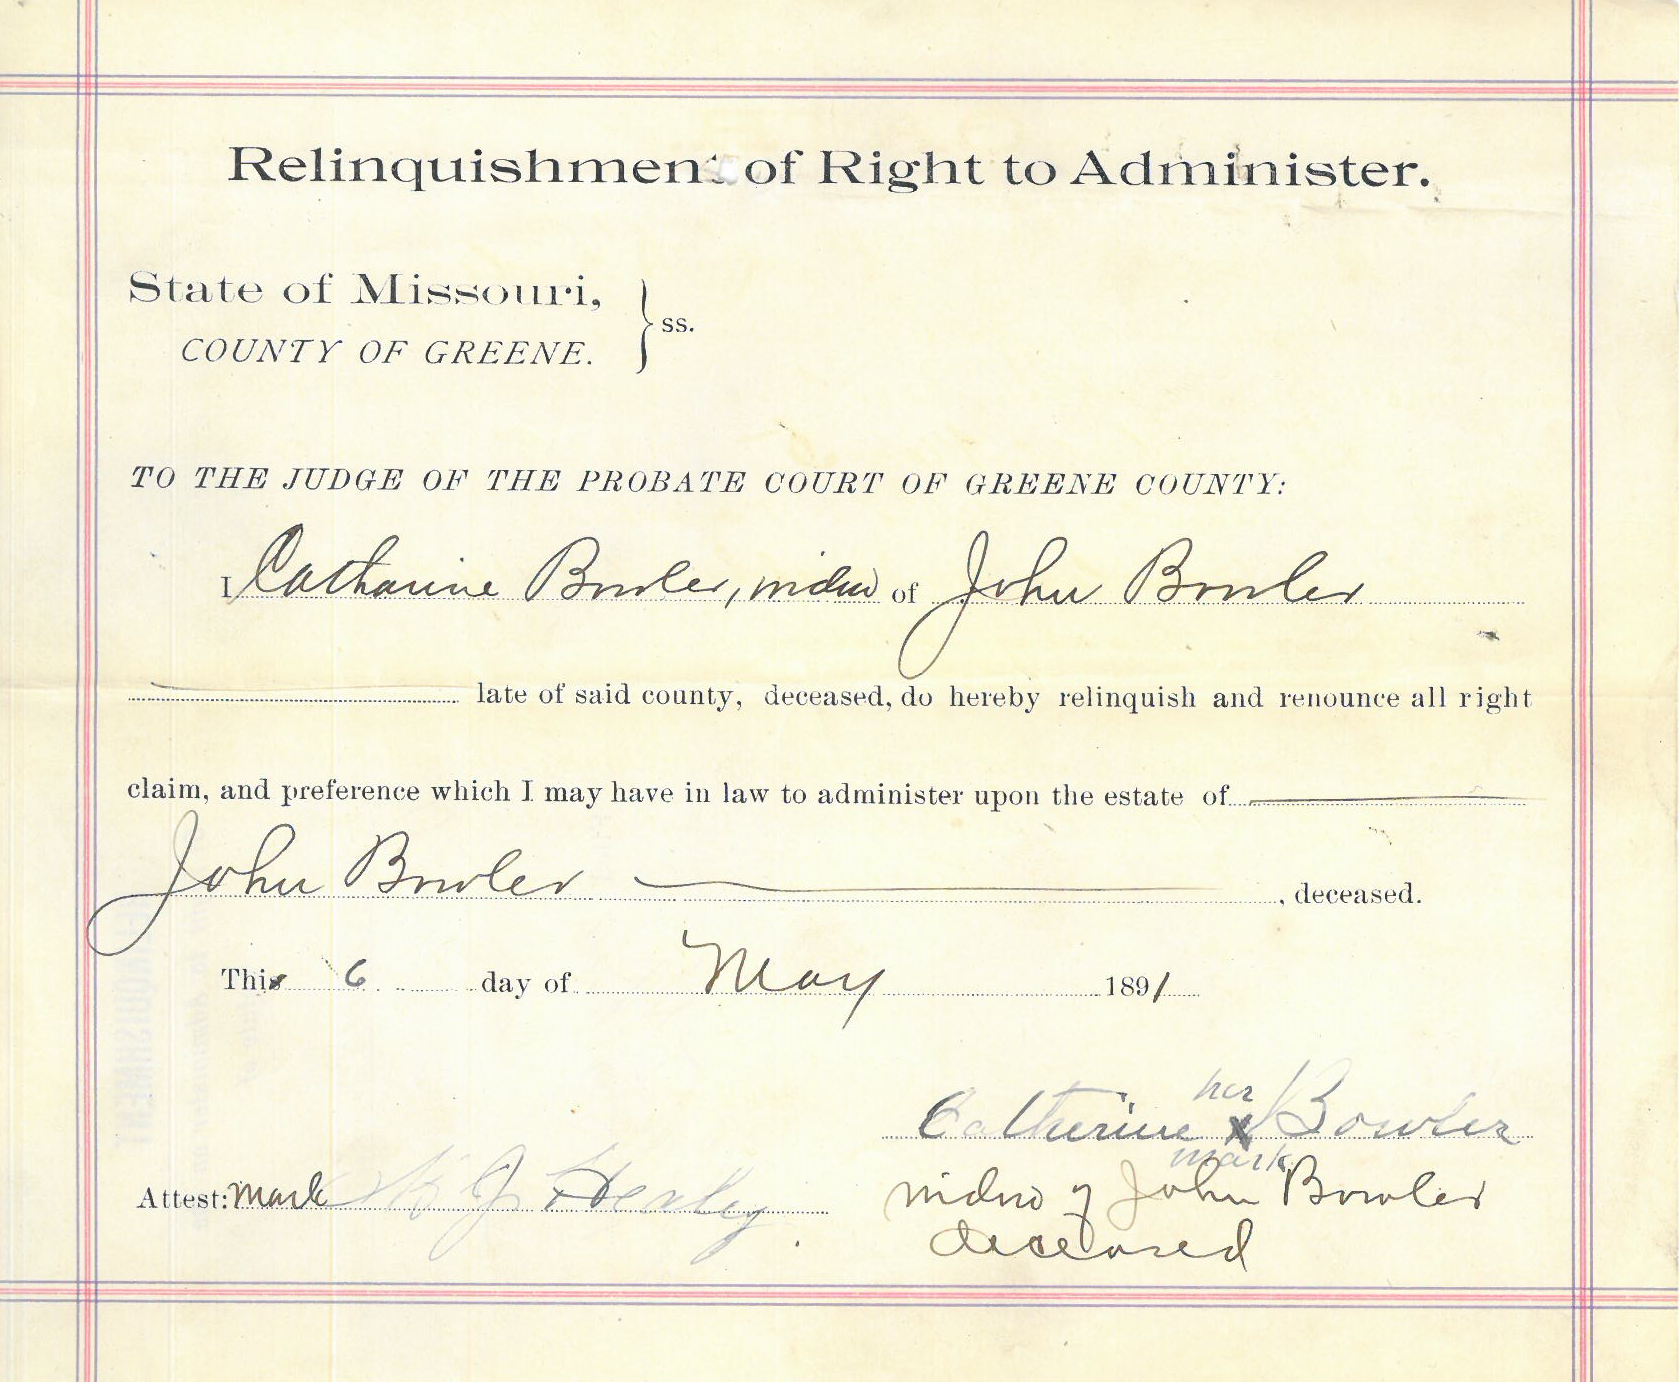 Relinquishment of Right to Administer.
State of Missouri,
COUNTY OF GREENE. } ss.
TO THE JUDGE OF THE PROBATE COURT OF GREENE COUNTY:
I Catharine Bowler, widow of John Bowler
late of said county, deceased, do hereby relinquish and renounce all right
claim, and preference which I may have in law to administer upon the estate of
John Bowler , deceased.
This 6 day of May 1891
her
Catherine X Bowler
mark
Attest: mark J Healey
widow of John Bowler
deceased